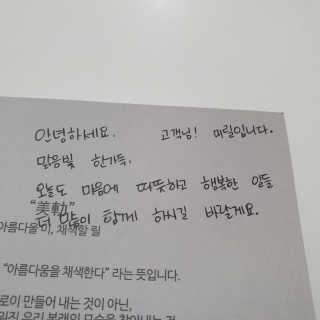 안녕하세요. 고객님! 미릴입니다.
맑음빛 한가득.
오늘도 마음에 따뜻하고 행복한 일들
"美軌"
더 많이 함께 하시길 바랄게요.
아름다울 미, 채색할 릴
"아름다움을 채색한다" 라는 뜻입니다.
로이 만들어 내는 것이 아닌,
우리 본래의 모습을 찾아내는 것